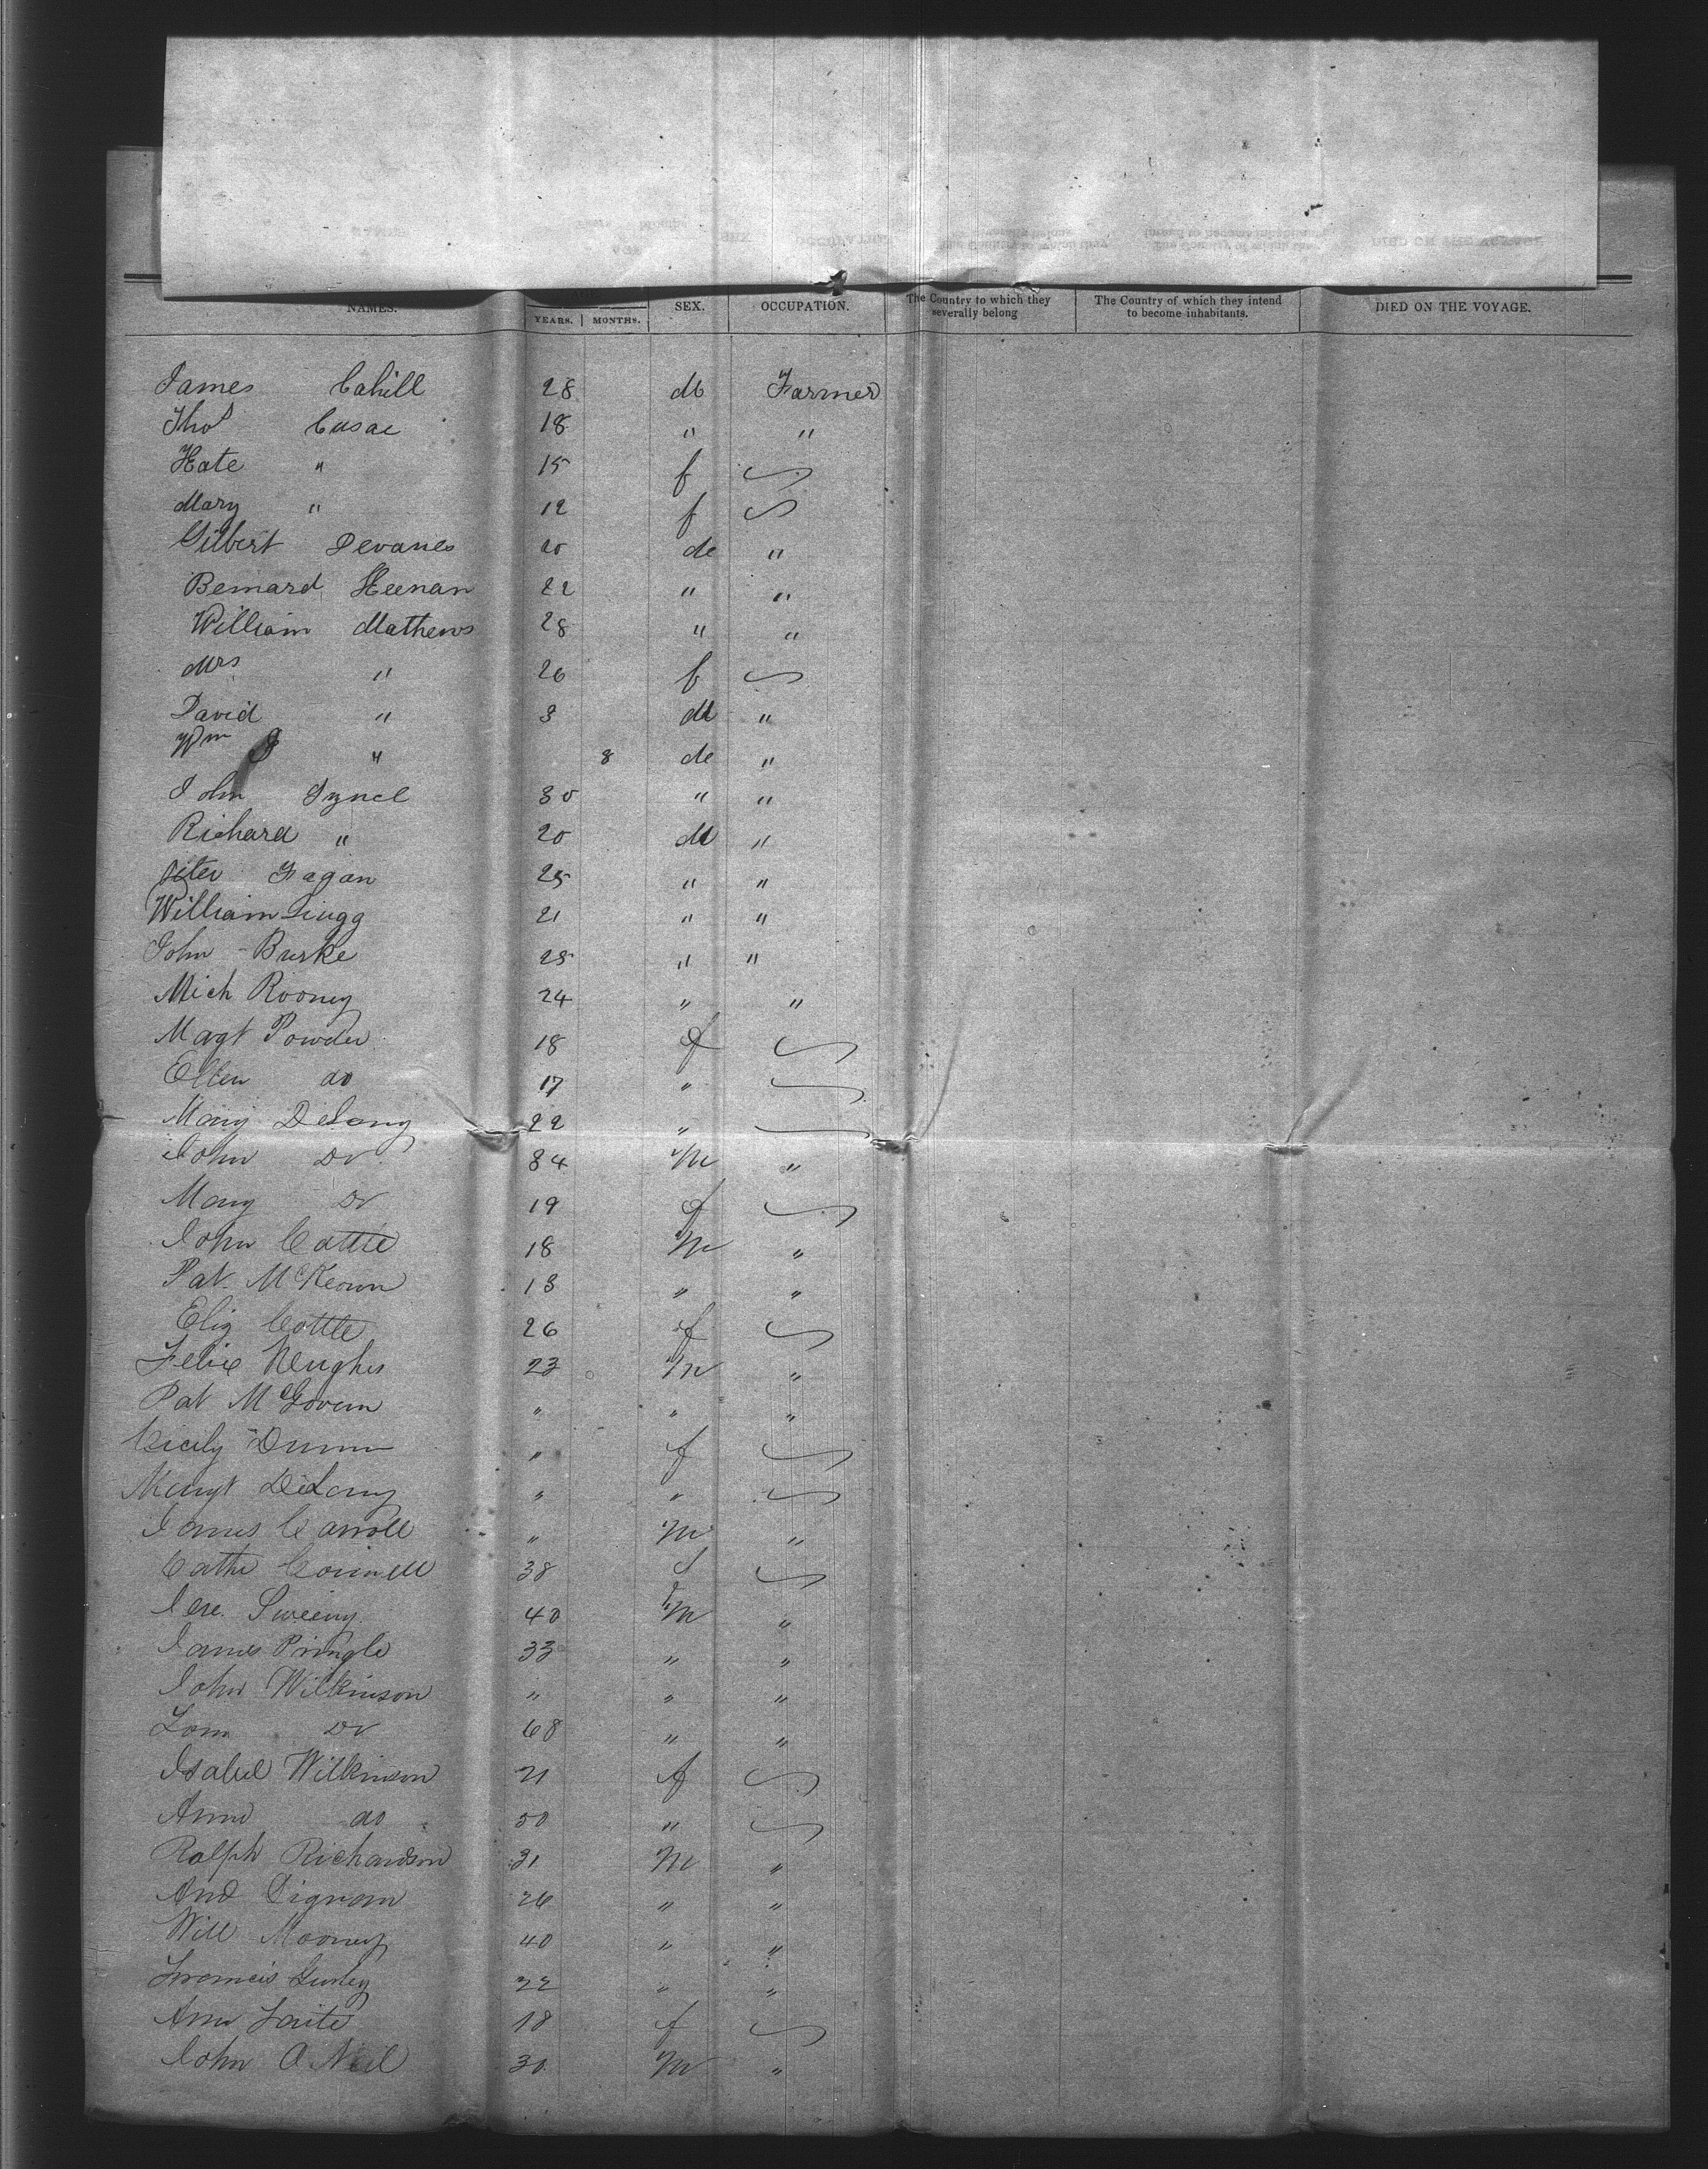 NAMES. YEARS. MONTHS. SEX. OCCUPATION. The Country to which they severally belong The Country of which they intend to become inhabitants. DIED ON THE VOYAGE.
James Cahill 28 M Farmer
Thos Cusac 18 " "
Kate " 15 f
Mary " 12 f
Gilbert Devanes 20 M "
Bernard Heenan 22 " "
William Mathews 28 " "
Mrs " 26 f
David " 3 M "
Wm J " 8 M "
John 30 " "
Richard " 20 M "
Peter Fagan 25 " "
William 21 " "
John Burke 25 " "
Mich Rooney 24 " "
Magt Powder 18 f
Ellen do 17 "
Mary DeLany 22 "
John Do 34 M "
Mary Do 19 f
John Cottle 18 M "
Pat McKeown 13 " "
Eliz Cottle 26 f
Felix Hughes 23 M "
Pat McGovern " " "
Cicily Dunn " f
Margt DeLany " "
James Carroll " M "
Cathe Connell 38 f
Jere. Sweeny 40 M "
James Pringle 33 " "
John Wilkinson " " "
Tom Do 68 " "
Isabel Wilkinson 21 f
Anne do 50 "
Ralph Richardson 31 M "
And Dignam 26 " "
Will Mooney 40 " "
Francis Gurley 22 " "
Ann 18 f
John O Neil 30 M "